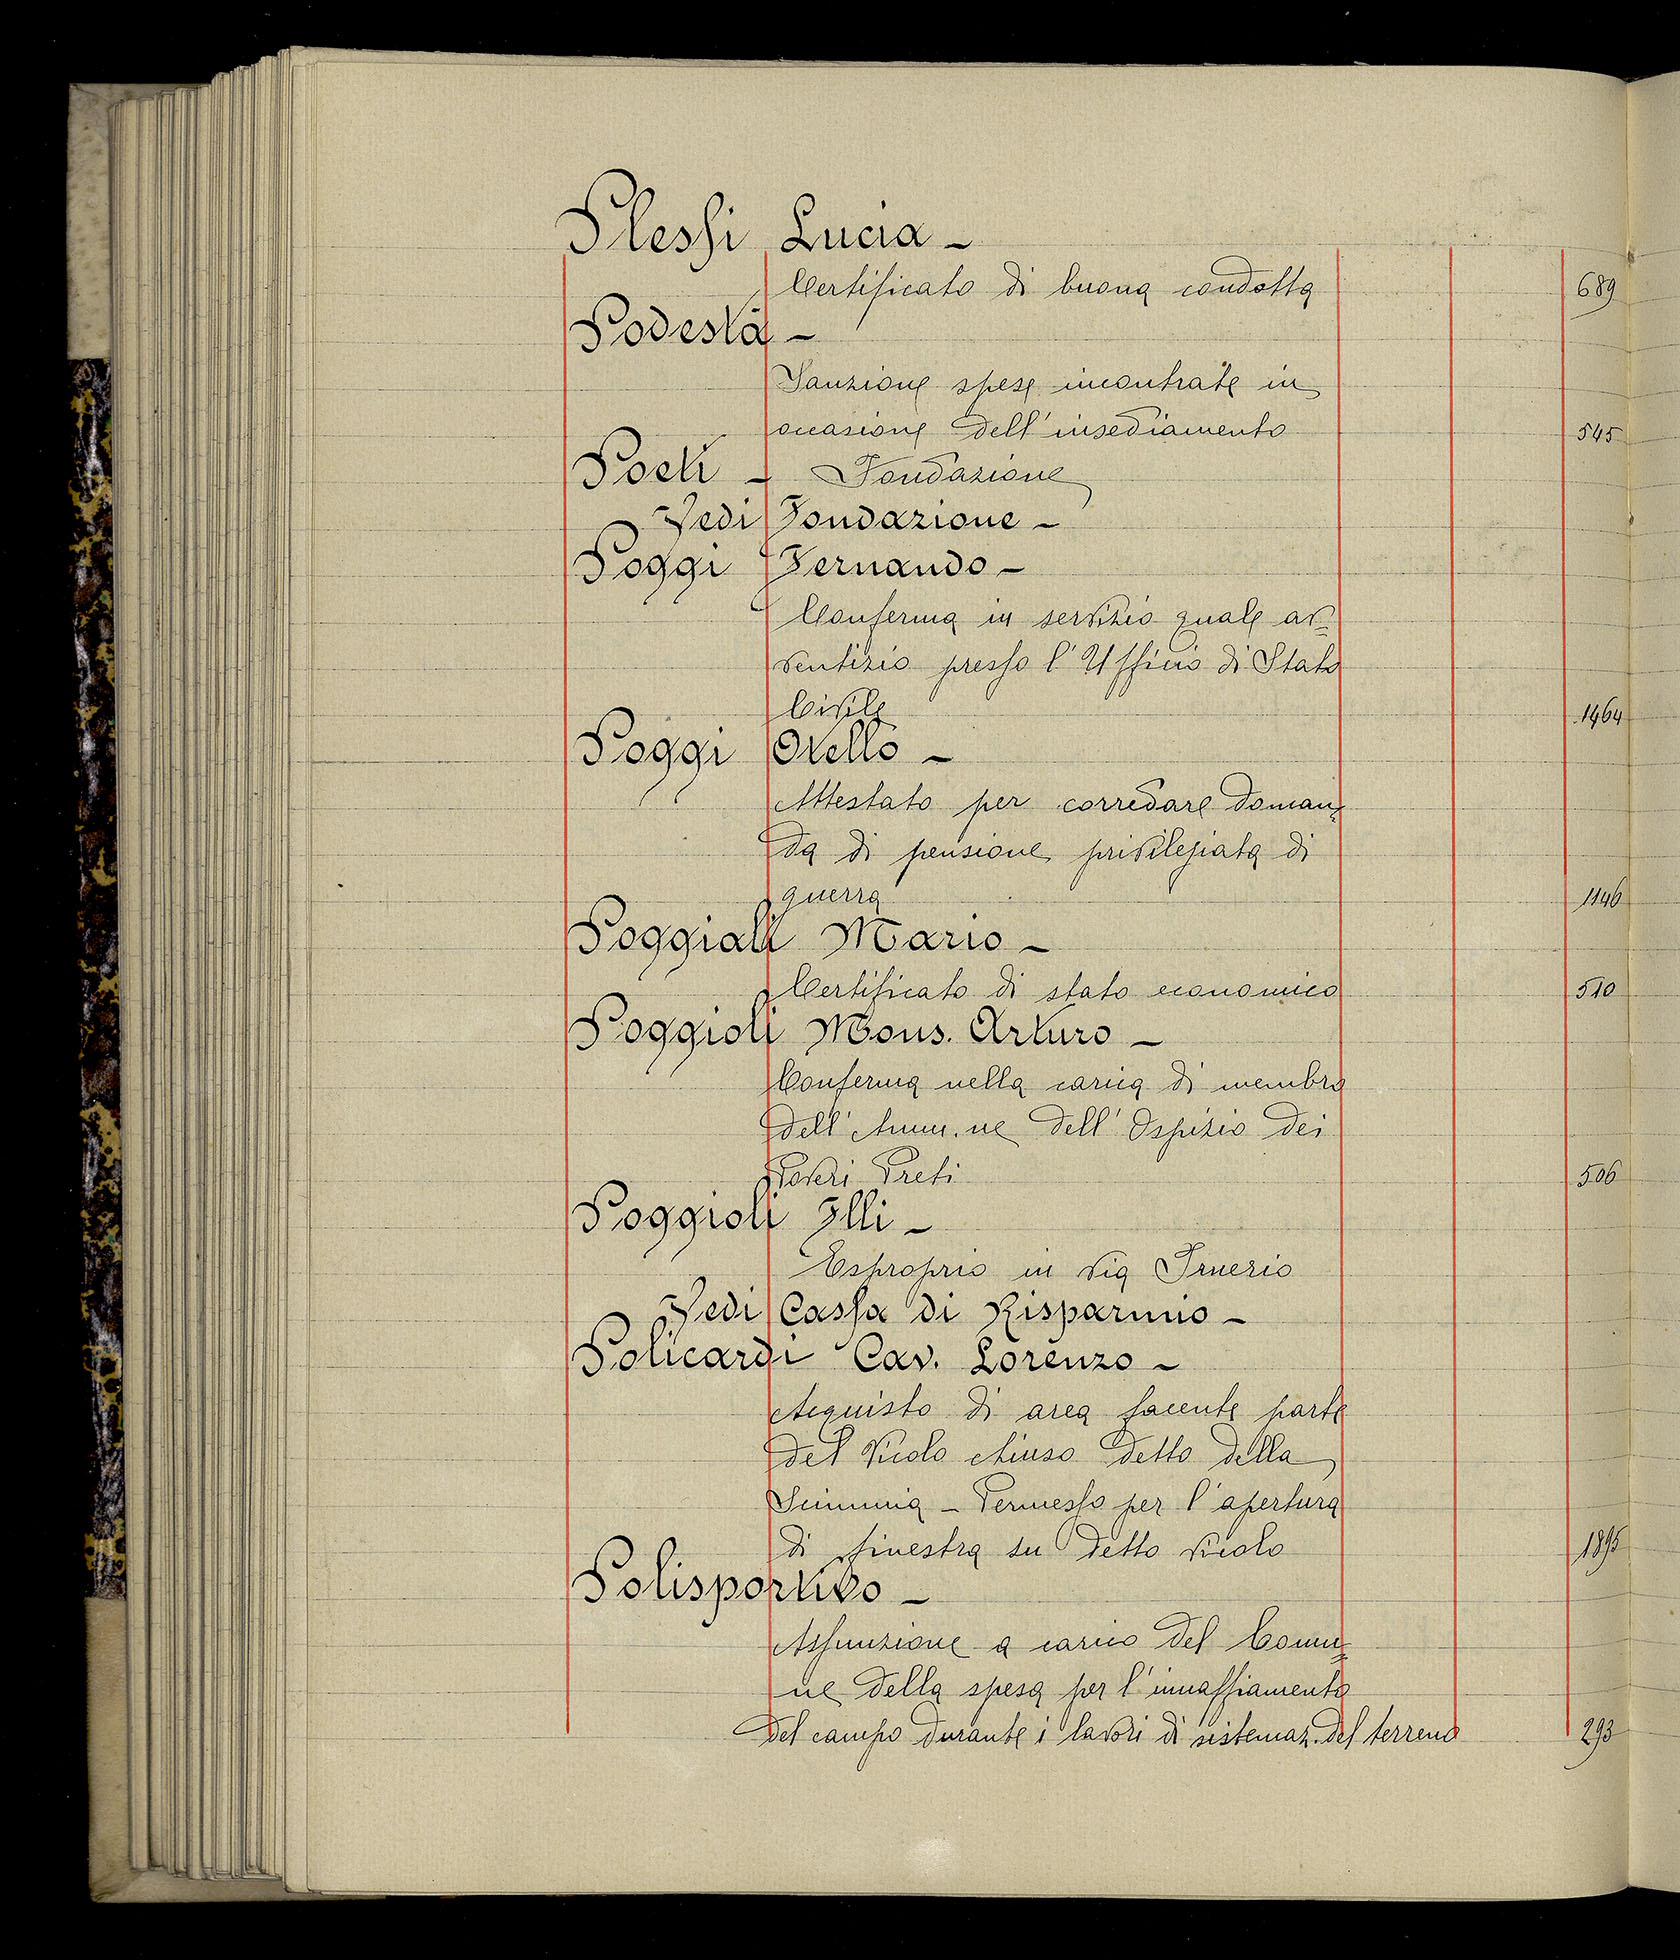 Plessi Lucia -
Certificato di buona condotta 689
Podestà -
Sanzione spese incontrate in
occasione dell'insediamento 545
Poeti - Fondazione
Vedi Fondazione -
Poggi Fernando -
Conferma in servizio quale av-
ventizio presso l'Ufficio di Stato
Civile 1464
Poggi Otello -
Attestato per corredare doman=
da di pensione privilegiata di
guerra 1146
Poggiali Mario -
Certificato di stato economico 510
Poggioli Mons. Arturo -
Conferma nella carica di membro
dell'Amm.ne dell'Ospizio dei
Poveri Preti 506
Poggioli F.lli -
Esproprio in via Irnerio
Vedi Cassa di Risparmio -
Policardi Cav. Lorenzo -
Acquisto di area facente parte
del Vicolo chiuso detto della
Scimmia - Permesso per l'apertura
di finestra su detto vicolo 1895
Polisportivo -
Assunzione a carico del Comu=
ne della spesa per l'innaffiamento
del campo durante i lavori di sistemaz. del terreno 293